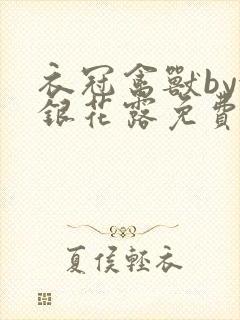 衣冠禽獸by
銀花露免費
夏侯輕衣